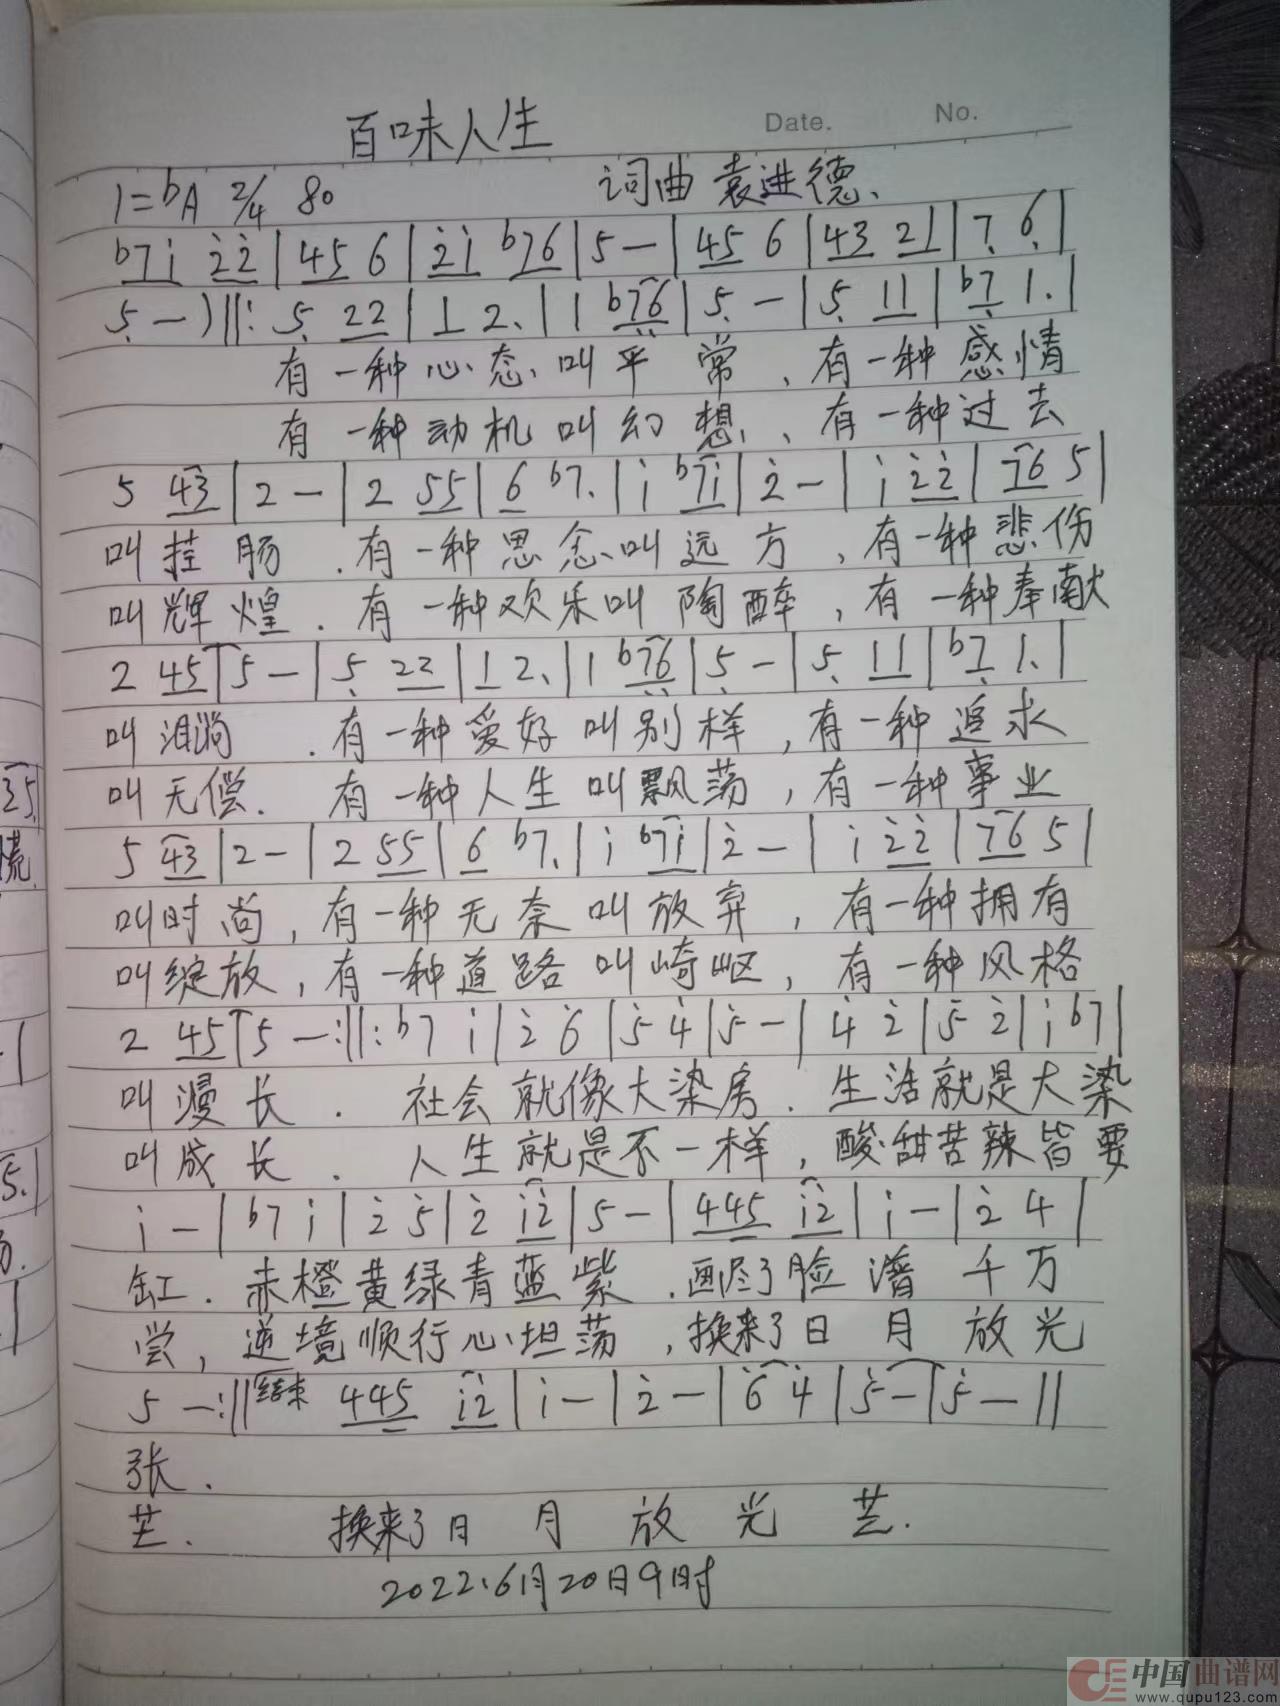 百味人生
Date.
No.
1=bA 2/4 80 词曲 袁进德、
b7i 22 | 45 6 | 2i b76 | 5 — | 45 6 | 43 21 | 7 6 |
5 — ) ||: 5 22 | 1 2. | 1 b76 | 5 — | 5 11 | b7 1. |
有一种心态叫平常、有一种感情
有一种动机叫幻想、有一种过去
5 43 | 2 — | 2 55 | 6 b7. | i b7i | 2 — | i 22 | 76 5 |
叫挂肠.有一种思念叫远方,有一种悲伤
叫辉煌.有一种欢乐叫陶醉,有一种奉献
2 45 | 5 — | 5 22 | 1 2. | 1 b76 | 5 — | 5 11 | b7 1. |
叫泪淌.有一种爱好叫别样,有一种追求
叫无偿.有一种人生叫飘荡,有一种事业
5 43 | 2 — | 2 55 | 6 b7. | i b7i | 2 — | i 22 | 76 5 |
叫时尚,有一种无奈叫放弃,有一种拥有
叫绽放,有一种道路叫崎岖,有一种风格
2 45 | 5 — :||: b7 i | 2 6 | 5 4 | 5 — | 4 2 | 5 2 | i b7 |
叫漫长.社会就像大染房.生活就是大染
叫成长.人生就是不一样,酸甜苦辣皆要
i — | b7 i | 2 5 | 2 i2 | 5 — | 445 i2 | i — | 2 4 |
缸.赤橙黄绿青蓝紫.画尽了脸谱千万
尝,逆境顺行心坦荡,换来了日月放光
5 — :|| 结束 445 i2 | i — | 2 — | 6 4 | 5 — | 5 — ||
张.
芒. 换来了日月放光芒.
2022.6月20日9时
35.
慌
5.
中国曲谱网
www.qupu123.com